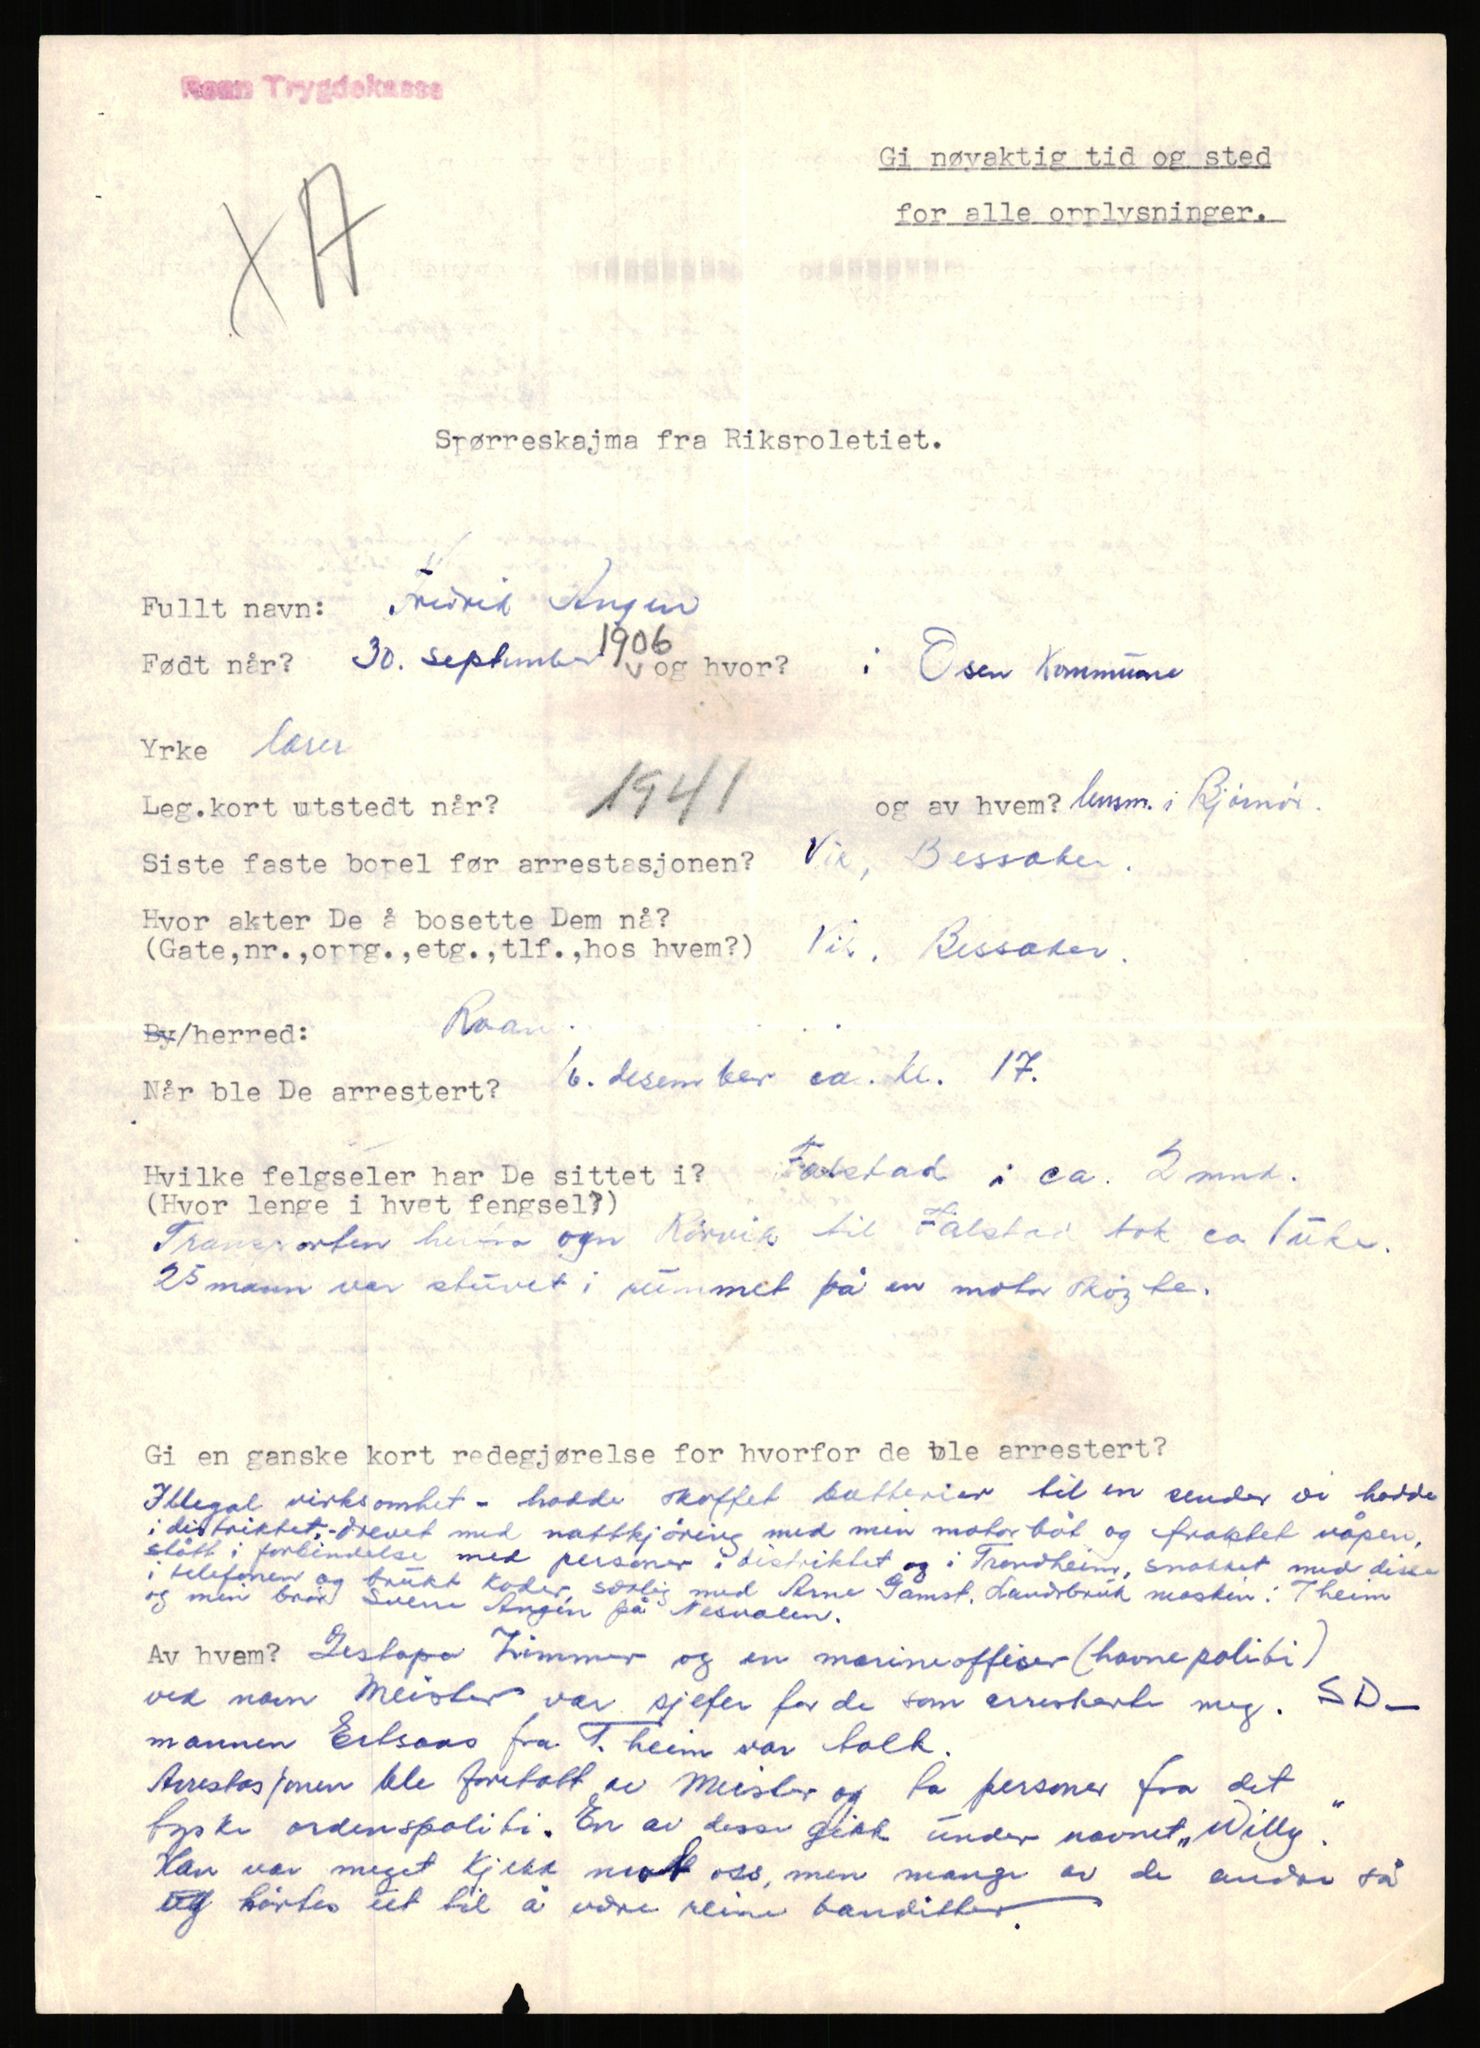 Roan Trygdekasse
Gi nøyaktig tid og sted
for alle opplysninger.
X A
Spørreskajma fra Rikspoletiet.
Fullt navn: Fredrik Angen
Født når? 30. september 1906 og hvor? i Osen Kommune
Yrke lærer
Leg.kort utstedt når? 1941 og av hvem? lensm. i Bjørnør.
Siste faste bopel før arrestasjonen? Vik, Bessaker.
Hvor akter De å bosette Dem nå?
(Gate,nr.,oppg.,etg.,tlf.,hos hvem?) Vik, Bessaker.
By/herred: Roan.
Når ble De arrestert? 6. desember ca. kl. 17.
Hvilke felgseler har De sittet i? Falstad i ca. 2 mnd.
(Hvor lenge i hvet fengsel?)
Transporten om Rørvik til Falstad tok ca 1 uke.
25 mann var stuvet i rummet på en motor skøyte.
Gi en ganske kort redegjørelse for hvorfor de ble arrestert?
Illegal virksomhet - hadde skaffet batterier til en sender vi hadde
i distriktet, - drevet med nattkjøring med min motorbåt og fraktet våpen,
stått i forbindelse med personer i distriktet og i Trondheim, snakket med disse
i telefonen og brukt koder, særlig med Arne Gamst, Landbruk i T heim
og min bror Sverre Angen på Nesvalen.
Av hvem? Gestapo Zimmer og en marineoffiser (havnepoliti)
ved navn Meister var sjefer for de som arresterte meg. SD-
mannen Ertsaas fra T. heim var tolk.
Arrestasjonen ble foretatt av Meister og to personer fra det
tyske ordenspoliti. En av desse gikk under navnet „Willy".
Han var meget kjekk mot oss, men mange av de andre så
og hørtes ut til å være reine banditter.